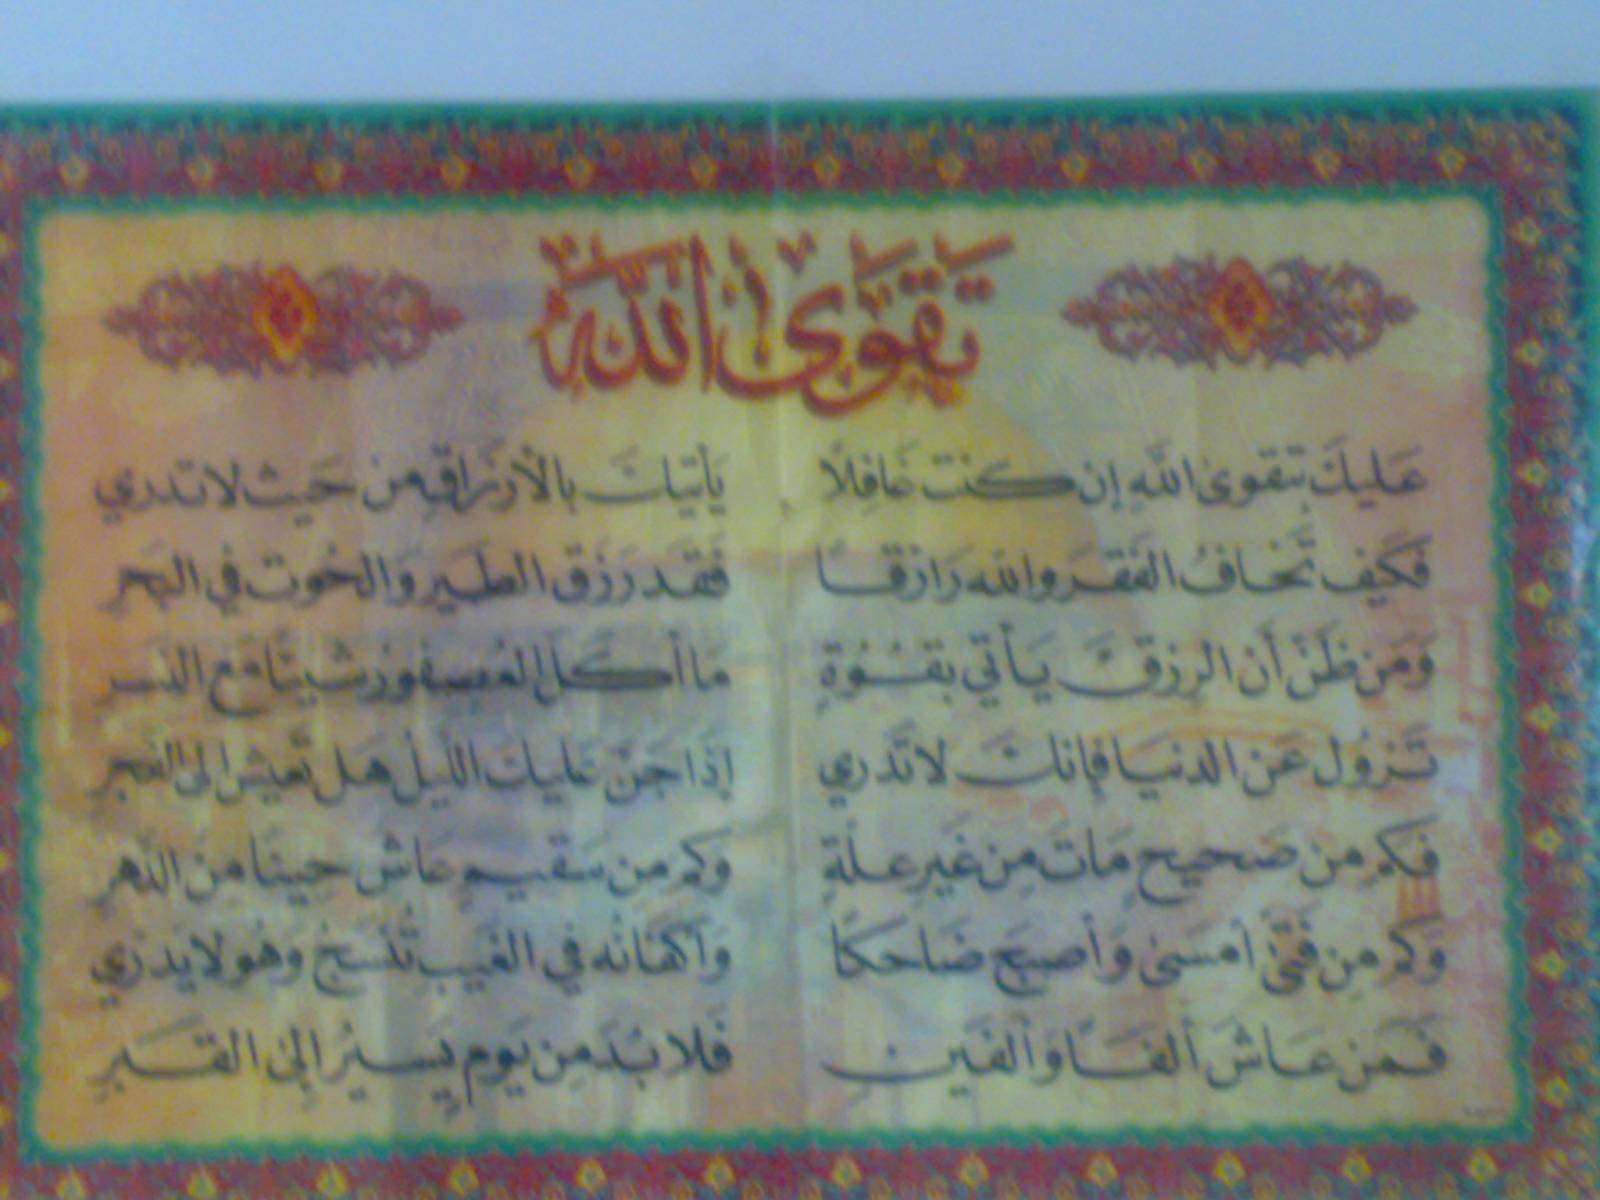 تقوى الله
عَليكَ بتقوىٰ اللَّهِ إن كنت غَافِلًا يَأتيكَ بالأرزَاقِ مِن حَيث لا تدري
فَكَيفَ تَخافُ الفَقرَ واللّه رَازقًا فَقَد رَزَقَ الطَيرَ وَالحُوتَ في البَحرِ
وَمَن ظَنَّ أن الرِزقَ يَأتي بقُوَةٍ مَا أكَلَ العُصفورُ شيئًا مَع النسرِ
تَزوُل عَن الدنيَا فإنكَ لا تَدري إذَا جَنّ عَليك الليلُ هَل تَعيش إلى الفجرِ
فكم مِن صَحيحٍ مَاتَ مِن غَيرِ علَةٍ وَكم مِن سَقيمٍ عَاشَ حِينًا مِنَ الدَهرِ
وَكم مِن فَتىً أمسَىٰ وَأصبحَ ضَاحكًا وَأكفانُه في الغَيبِ تُنسَجُ وَهُو لا يَدري
فَمَن عَاشَ ألفًا وَألفَينِ فَلا بُدَ مِن يَومٍ يَسيرُ إلى القَبرِ